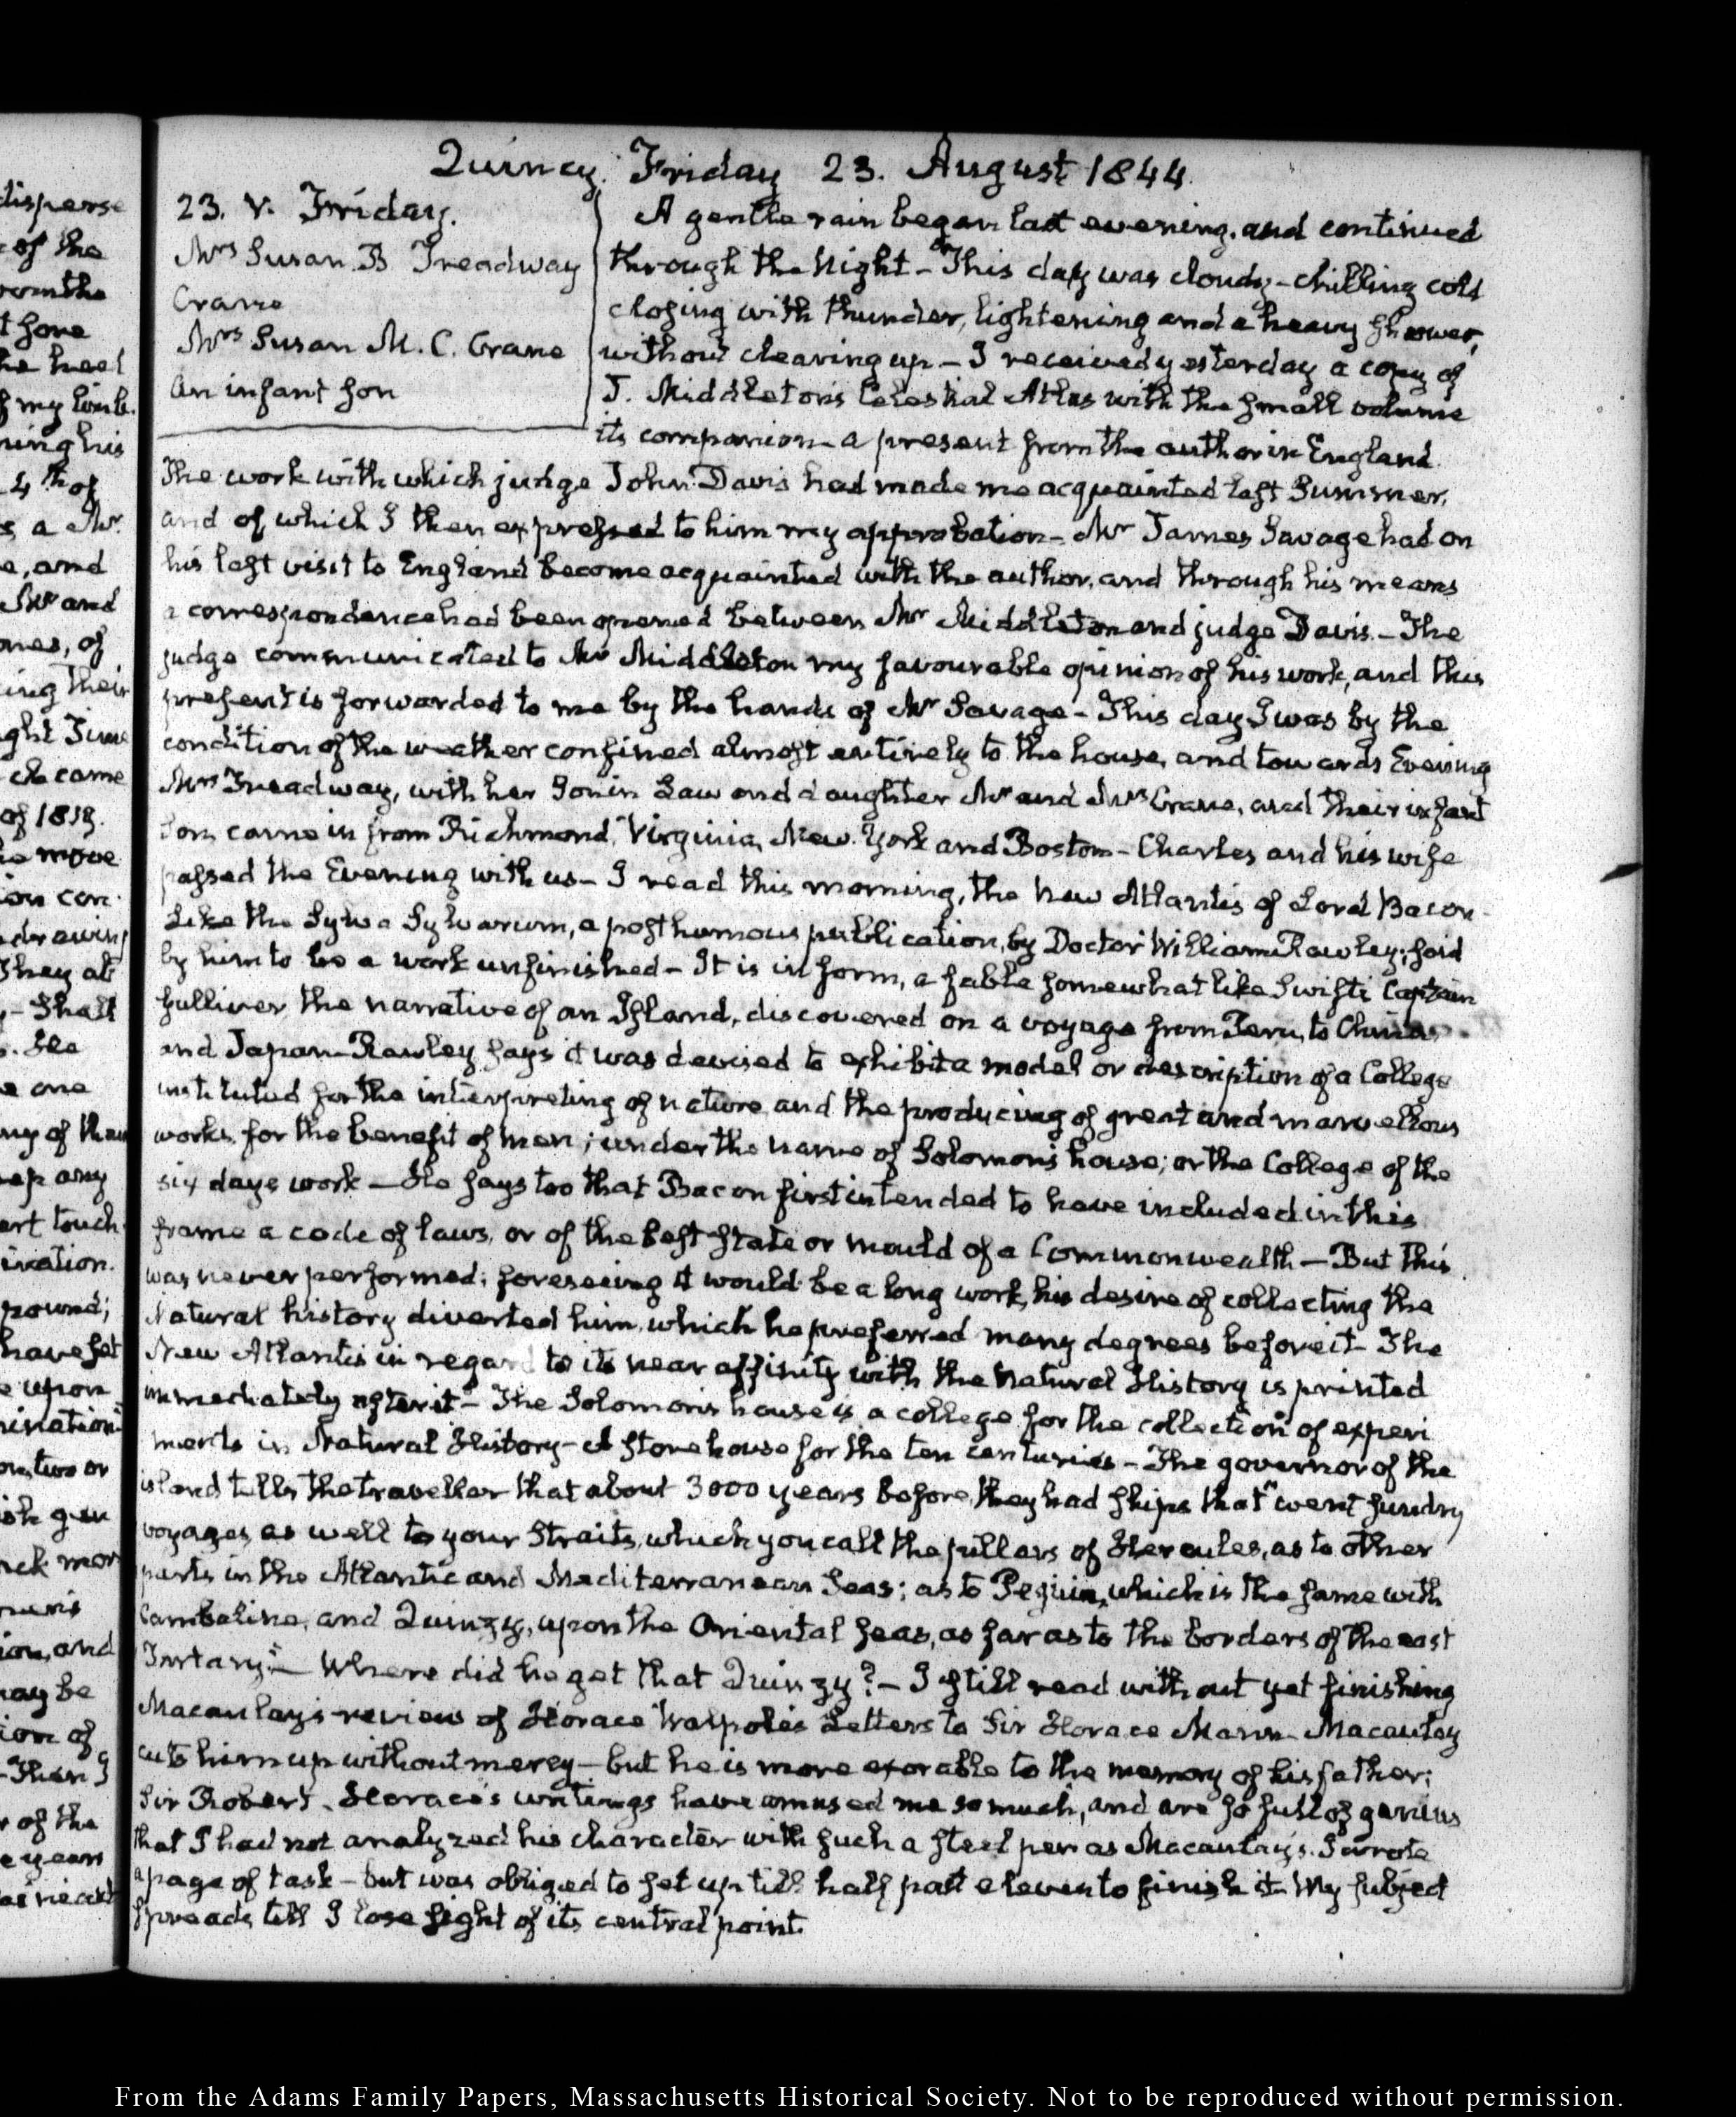 Quincy. Friday 23. August 1844.
23. V. Friday.
Mrs Susan B Treadway
Crane
Mrs Susan M. C. Crane
An infant son
A gentle rain began last evening, and continued
through the Night — This day was cloudy — chilling cold
closing with thunder, lightening and a heavy shower,
without clearing up — I received yesterday a copy of
J. Middleton's Celestial Atlas with the small volume
its companion — a present from the author in England.
The work with which judge John Davis had made me acquainted last Summer,
and of which I then expressed to him my approbation — Mr James Savage had on
his last visit to England become acquainted with the author, and through his means
a correspondence had been opened between Mr Middleton and judge Davis. — The
judge communicated to Mr Middleton my favourable opinion of his work, and this
present is forwarded to me by the hands of Mr Savage — This day I was by the
condition of the weather confined almost entirely to the house, and towards Evening
Mrs Treadway, with her Son in Law and daughter Mr and Mrs Crane, and their infant
son, came in from Richmond, Virginia, New-York and Boston — Charles and his wife
passed the Evening with us — I read this morning, the New Atlantis of Lord Bacon
Like the Sylva Sylvarum, a posthumous publication, by Doctor William Rawley; said
by him to be a work unfinished — It is in form, a fable somewhat like Swift's Captain
Gulliver, the narrative of an Island, discovered on a voyage from Peru, to China
and Japan — Rawley says it was devised to exhibit a model or description of a College
instituted for the interpreting of nature and the producing of great and marvellous
works, for the benefit of men; under the name of Solomon's house; or the College of the
six days work — He says too that Bacon first intended to have included in this
frame a code of laws, or of the best state or mould of a Commonwealth — But this
was never performed; foreseeing it would be a long work, his desire of collecting the
Natural history diverted him, which he preferred many degrees before it — The
New Atlantis in regard to its near affinity with the Natural History is printed
immediately after it — The Solomon's house is a college for the collection of experi
ments in Natural History — A Storehouse for the ten centuries — The governor of the
island tells the traveller that about 3000 years before, they had ships that "went sundry
voyages, as well to your Straits, which you call the pillars of Hercules, as to other
parts in the Atlantic and Mediterranean Seas; as to Peguin, which is the same with
Cambaline, and Quinzy, upon the Oriental seas, as far as to the borders of the east
Tartary." — Where did he get that Quinzy? — I still read without yet finishing
Macaulay's review of Horace Walpole's Letters to Sir Horace Mann — Macaulay
cuts him up without mercy — but he is more exorable to the memory of his father;
Sir Robert. Horace's writings have amused me so much, and are so full of genius
that I had not analyzed his character with such a steel pen as Macaulay's. I wrote
a page of task — but was obliged to set up till half past eleven to finish it — My subject
spreads till I lose sight of its central point.
disperse
of the
my limb.
ning his
4th of
s a Mr.
e, and
Mr and
ones, of
ing their
ght Time
of 1818.
ion con
They at
Shall
one
any
ert touch
pound;
have set
upon
ination
ion, and
ay be
ion of
Then I
r of the
e years
From the Adams Family Papers, Massachusetts Historical Society. Not to be reproduced without permission.